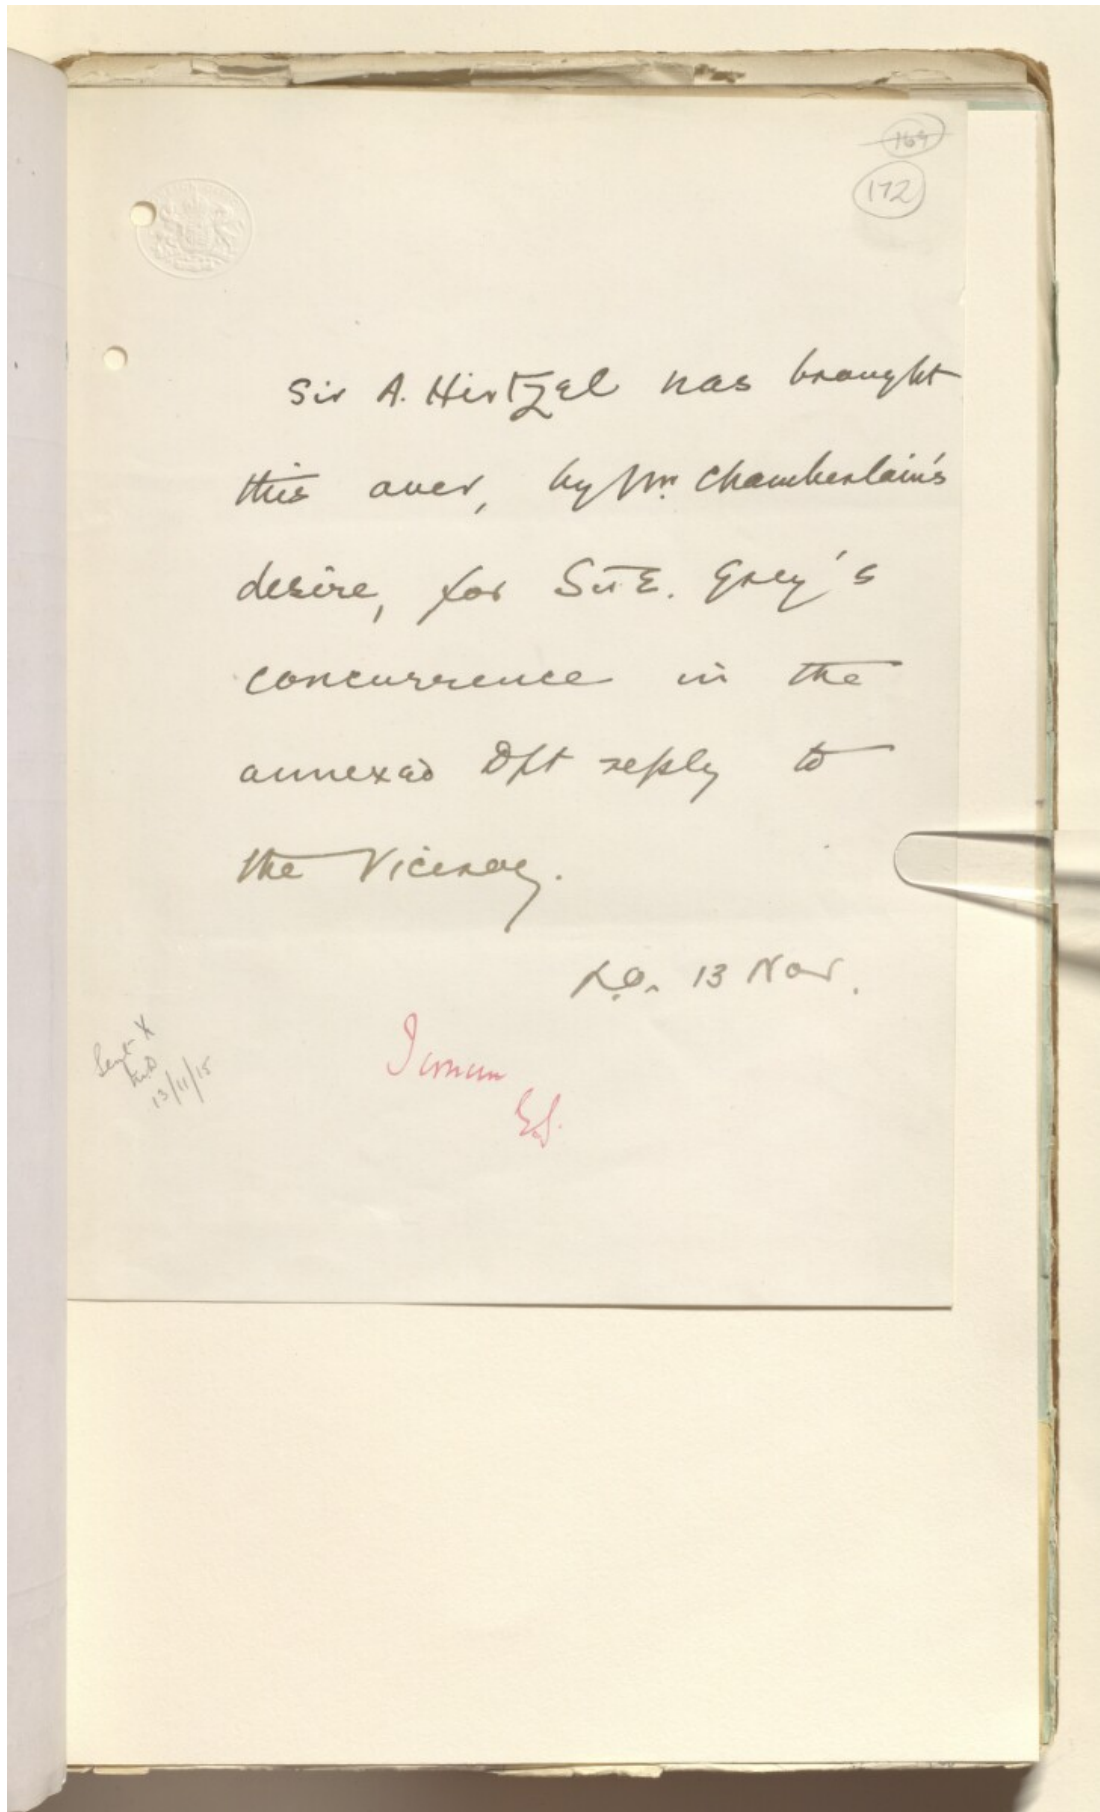 169
172
Sir A. Hirtzel has brought
this over, by Mr. Chamberlain's
desire, for Sir E. Grey's
concurrence in the
annexed Dft reply to
the Viceroy.
13 Nov.
I concur
E.G.
Sent X
13/11/15